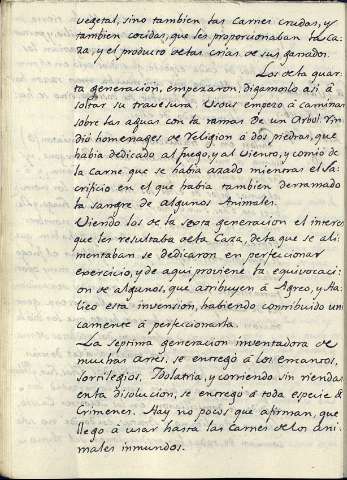 vegetal, sino tambien las Carnes crudas, y
tambien cocidas, que les proporcionaban la Ca-
za, y el producto de las crias de sus ganados.
Los de la quar-
ta generacion, empezaron, digamoslo asi à
soltar su travesura. Usous empezó à caminar
sobre las aguas con la ramas de un Arbol. Rin-
dió homenages de Religion à dos piedras, que
habia dedicado al fuego, y al viento, y comió de
la Carne que se habia asado mientras el sa-
crificio en el que habia tambien derramado
la sangre de algunos Animales.
Viendo los de la sexta generacion el interes
que les resultaba de la Caza, de la que se ali-
mentaban se dedicaron en perfeccionar
exercicio, y de aqui proviene la equivocaci-
on de algunos, que atribuyen à Agreo, y Ha-
lieo esta invension, habiendo contribuido uni-
camente à perfeccionarla.
La septima generacion inventadora de
muchas Artes, se entregó à los Encantos,
Sortilegios, Idolatria, y corriendo sin riendas
en la disolucion, se entregó à toda especie de
Crimenes. Hay no pocos que afirman, que
llegó à usar hasta las Carnes de los ani-
males inmundos.